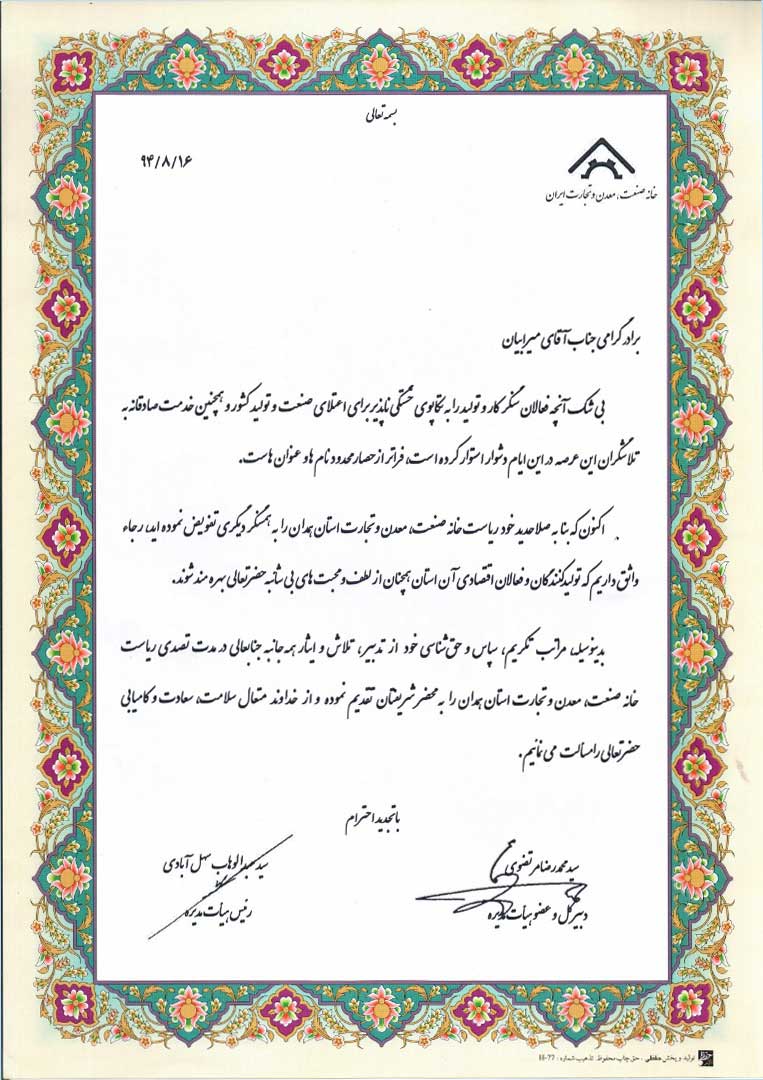 بسمه تعالی
۹۴/۸/۱۶
خانه صنعت، معدن و تجارت ایران
برادر گرامی جناب آقای میرابیان
بی شک آنچه فعالان سنگر کار و تولید را به تکاپوی خستگی ناپذیر برای اعتلای صنعت و تولید کشور و همچنین خدمت صادقانه به
تلاشگران این عرصه در این ایام دشوار استوار کرده است، فراتر از حصار محدود نام ها و عنوان هاست.
اکنون که بنا به صلاحدید خود ریاست خانه صنعت، معدن و تجارت استان همدان را به همسنگر دیگری تفویض نموده اید، رجاء
واثق داریم که تولیدکنندگان و فعالان اقتصادی آن استان همچنان از لطف و محبت های بی شائبه حضرتعالی بهره مند شوند.
بدینوسیله، مراتب تکریم، سپاس و حق شناسی خود از تدبیر، تلاش و ایثار همه جانبه جنابعالی در مدت تصدی ریاست
خانه صنعت، معدن و تجارت استان همدان را به محضر شریفتان تقدیم نموده و از خداوند متعال سلامت، سعادت و کامیابی
حضرتعالی را مسألت می نمائیم.
با تجدید احترام
سید محمدرضا مرتضوی
دبیرکل و عضو هیأت مدیره
سید عبدالوهاب سهل آبادی
رئیس هیأت مدیره
تولید و پخش حفظی . حق چاپ محفوظ. تذهیب شماره : H-77